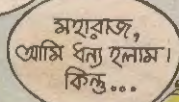 মহারাজ,
আমি ধন্য হলাম।
কিন্তু...